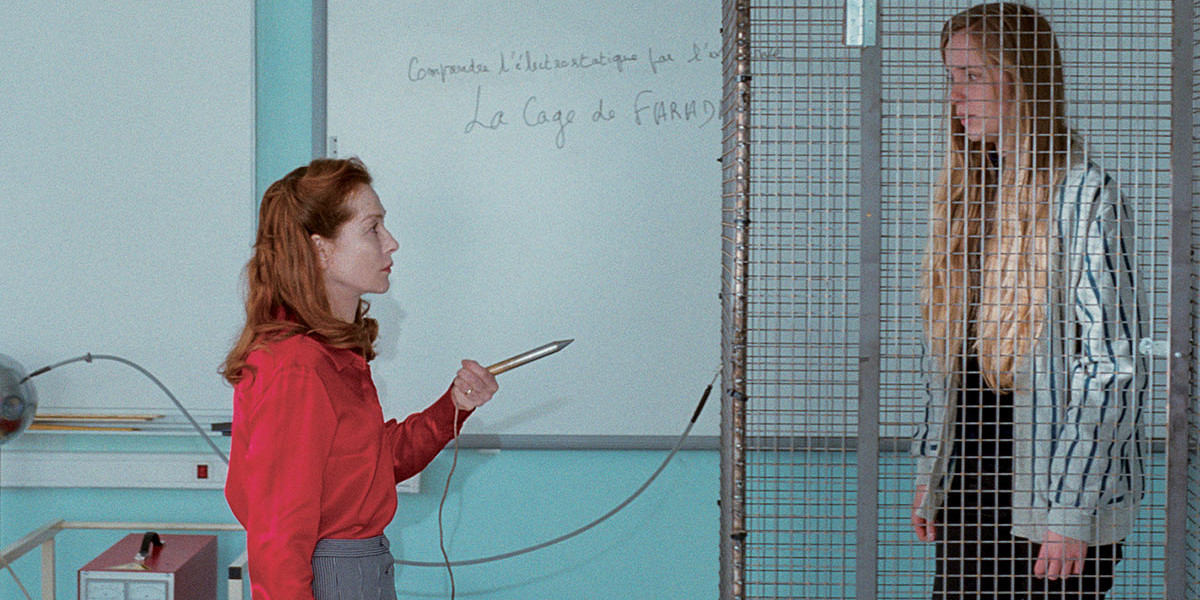 Comprendre l'électrostatique par l'
La Cage de FARADA